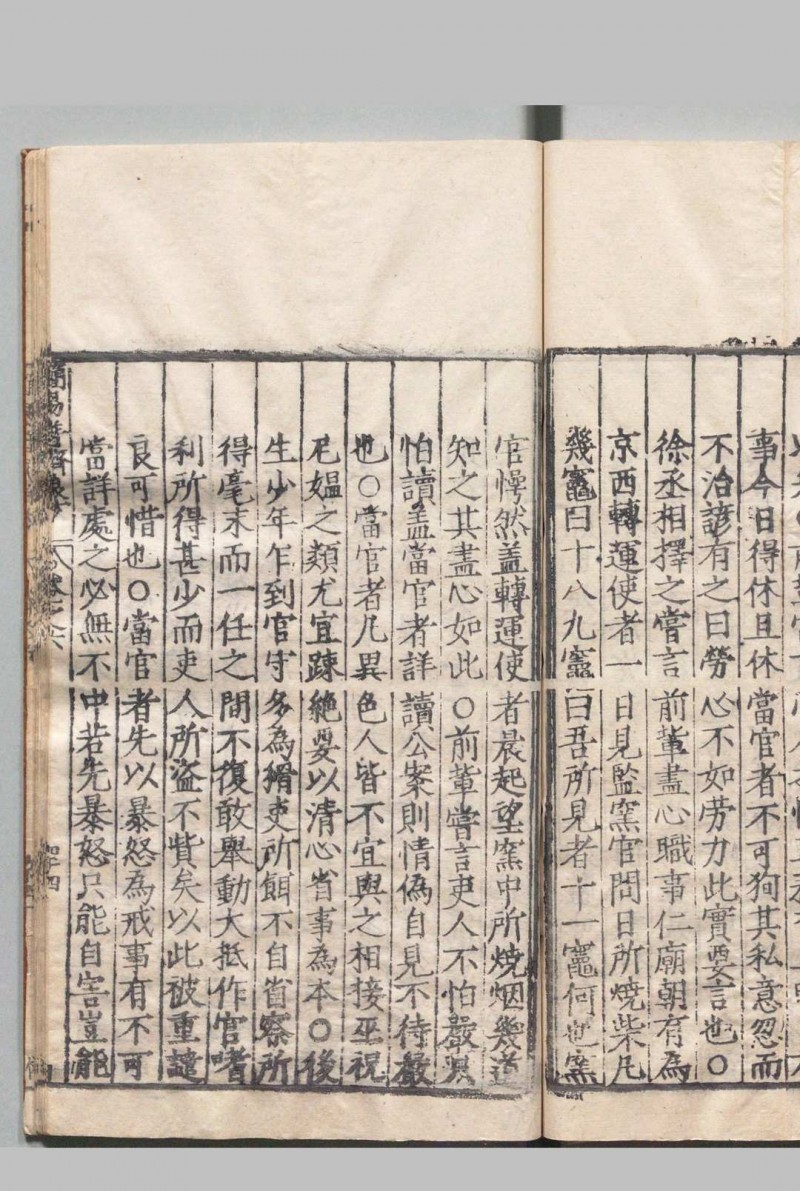 事今日得休且休當官者不可狥其私意忽而
不治諺有之曰勞心不如劳力此實要言也○
徐丞相擇之嘗言前輩盡心職事仁廟朝有為
京西轉運使者一日見監窯官問日所燒柴凡
幾竈曰十八九竈曰吾所見者十一竈何也窯
官愕然盖轉運使者晨起望窯中所燒烟幾道
知之其盡心如此○前輩嘗言吏人不怕嚴只
怕讀盖當官者詳讀公案則情僞自見不待嚴
也○當官者凡異色人皆不宜與之相接巫祝
尼媪之類尤宜踈絶要以清心省事為本○後
生少年乍到官守多為猾吏所餌不自省察所
得毫末而一任之間不復敢舉動大抵作官嗜
利所得甚少而吏人所盗不貲矣以此被重譴
良可惜也○當官者先以暴怒為戒事有不可
當詳處之必無不中若先暴怒只能自害豈能